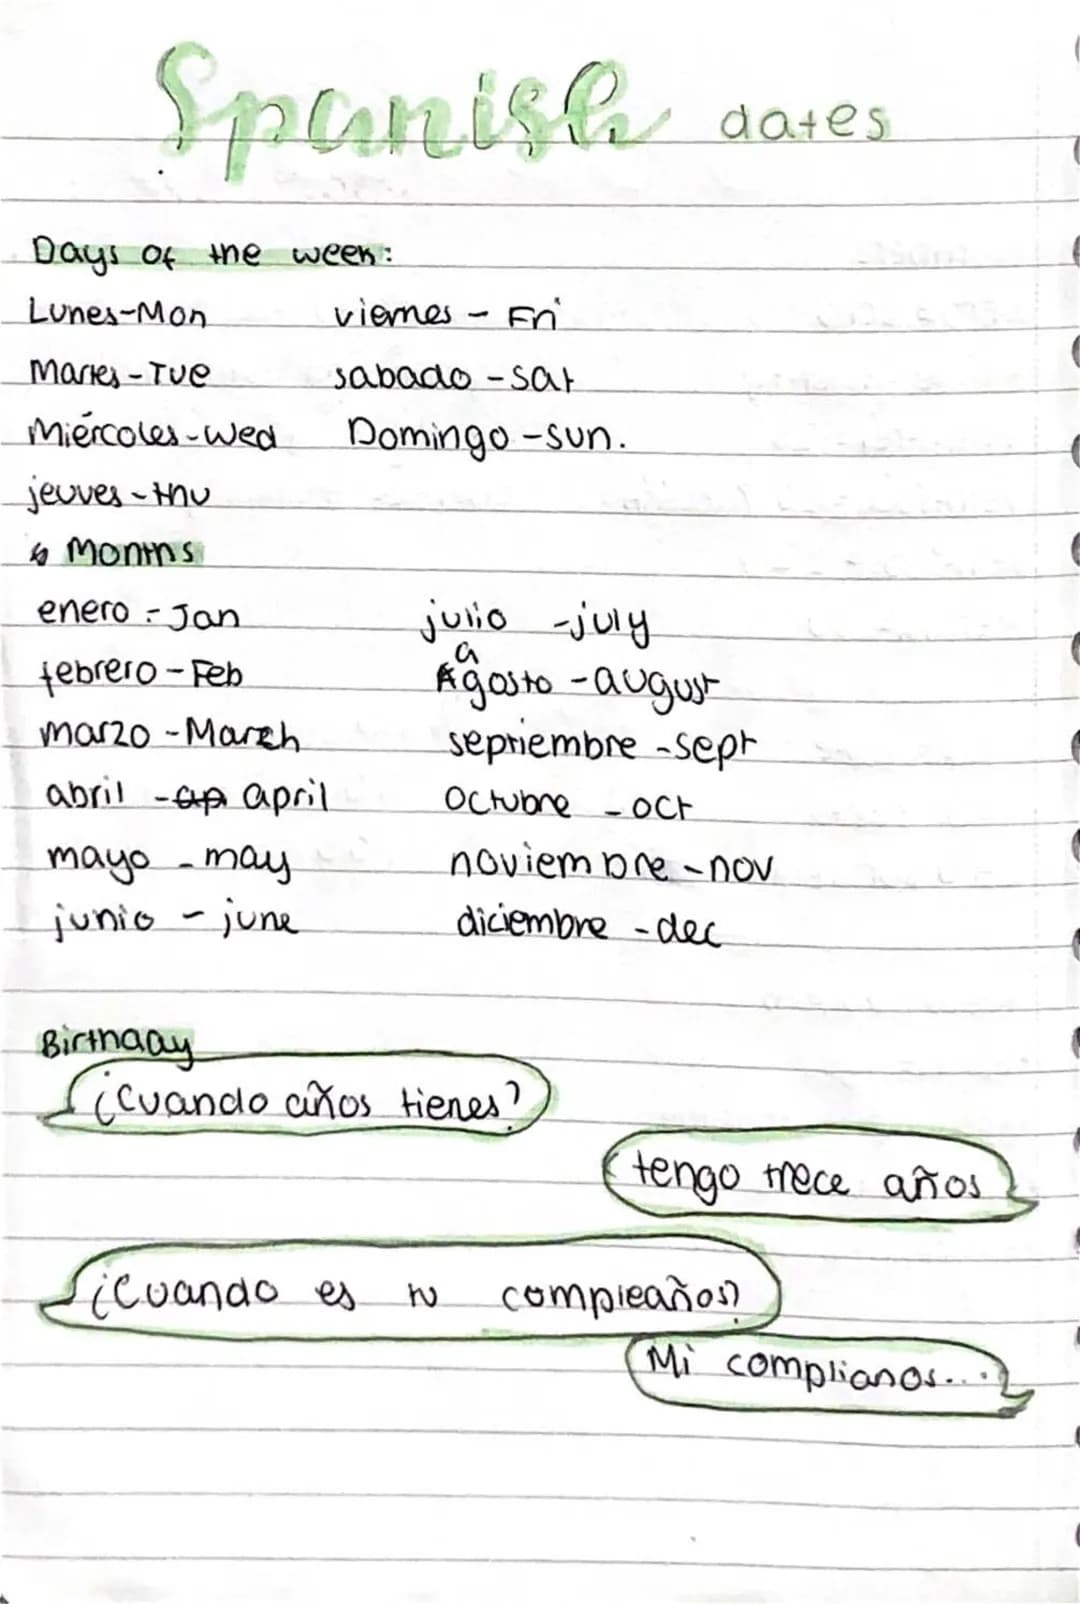 Spanish dates
Days of the week:
Lunes-Mon viernes - Fri
Martes-Tue sabado -sat
Miércoles-Wed Domingo -sun.
jeuves -thu
Months
enero - Jan julio -july
febrero - Feb agosto -august
marzo -March septiembre -sept
abril -ap april octubre -oct
mayo - may noviembre -nov
junio - june diciembre -dec
Birthday
¿Cuando años tienes?
tengo trece años
¿Cuando es tu compleaños?
Mi complianos....